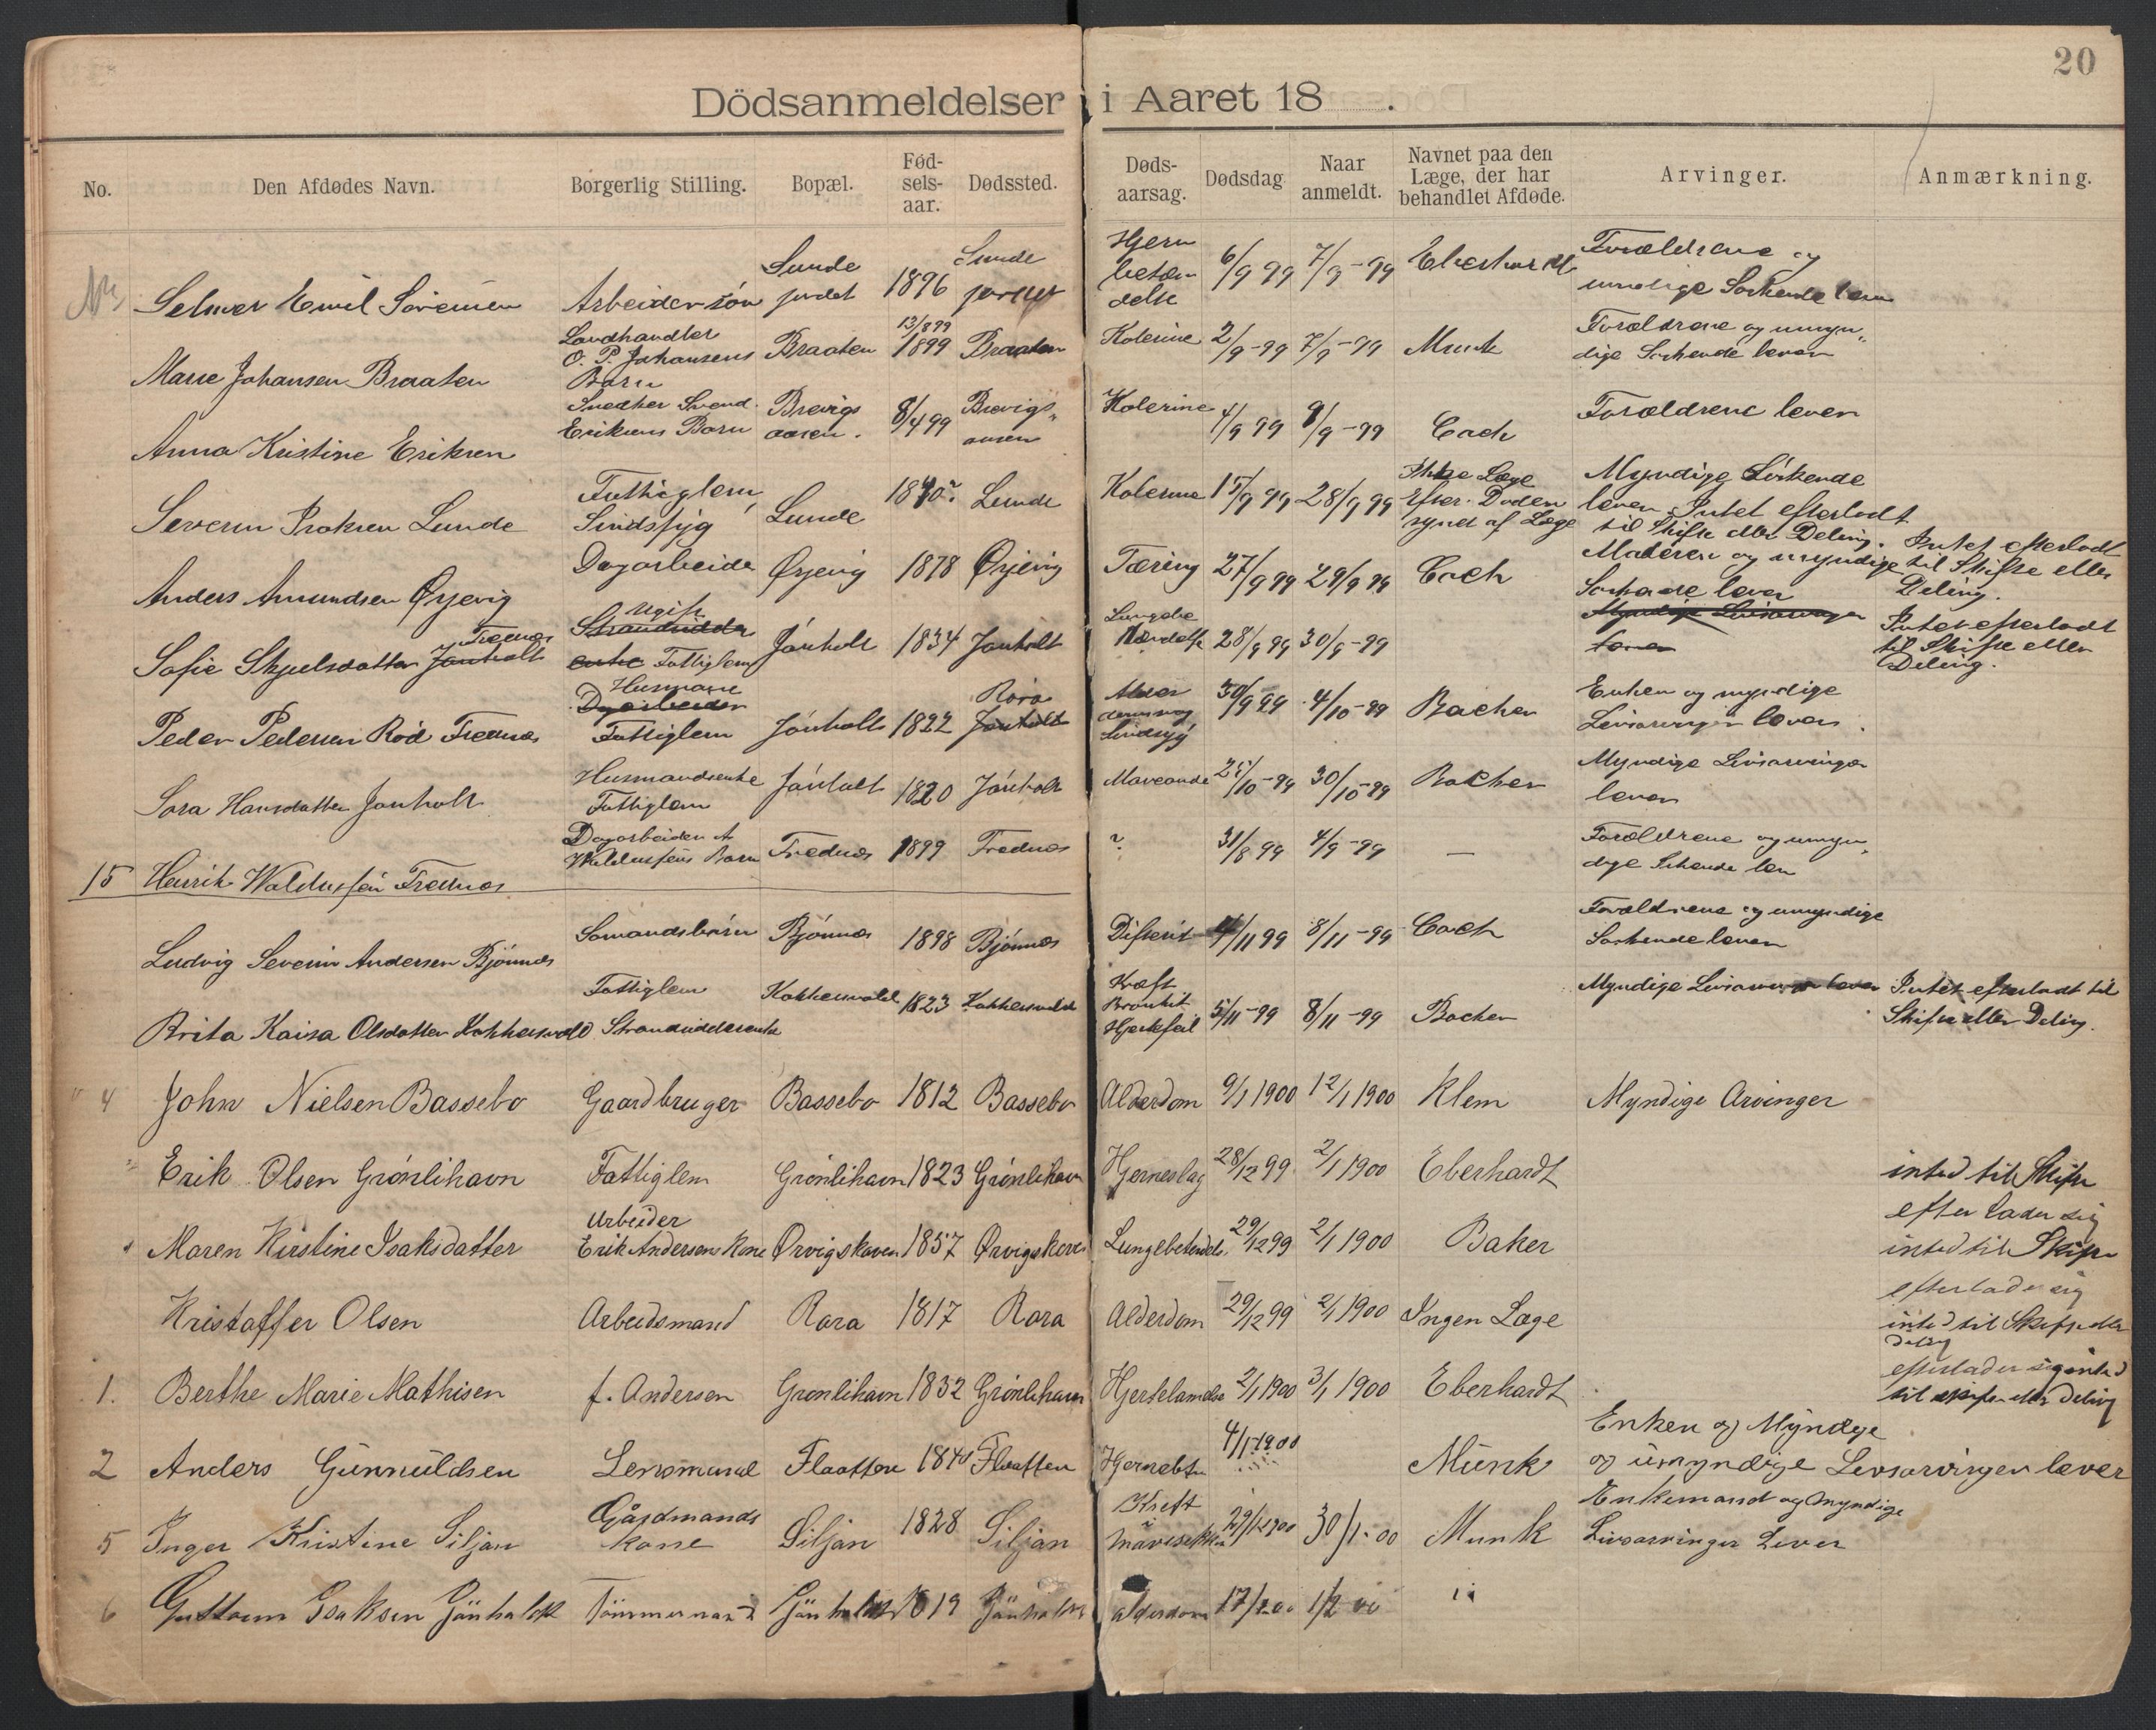 20
Dödsanmeldelser i Aaret 18 .
No. Den Afdødes Navn. Borgerlig Stilling. Bopæl. Fød-sels-aar. Dødssted. Døds-aarsag. Dødsdag Naar anmeldt. Navnet paa den Læge, der har behandlet Afdøde. Arvinger. Anmærkning.
Selmer Emil Sørensen Arbeidersøn Lunde jordet 1896 Lunde jordet Hjern betæn delse 6/9 99 7/9-99 Eberhardt Forældrene og umndige Søskende leva
Marie Johansen Braaten Landhandler O. P. Johansens Barn Braaten 13/8 99 1899 Braaten Kolerine 2/9-99 7/9-99 Munk Forældrene og umyn„ dige Søskende lever
Anna Kristine Eriksen Snedker Svend Eriksens Barn Brevigs aasen. 8/4 99 Brevigs„ aasen Kolerine 4/9 99 9/9-99 Coch Forældrene lever
Severin Isaksen Lunde Fattiglem, Sindssyg Lunde 1840?. Lunde Kolerine 15/9 99 28/9 99 Ikke Læge Efter Døden synet af Læge Myndige Søskende lever Intet efterladt til Skifte eller Deling.
Anders Amundsen Ørjevig Dagarbeider Ørjevig 1878 Ørjevig Tæring 27/9 99 29/9 99 Coch Moderen og myndige Søskende lever Intet efterladt til Skifte eller Deling.
Sofie Skjelsdatter Jønholt Frednes Strandsidder enke ugift Fattiglem Jønholt 1834 Jønholt Lungebe tændelse 28/9 99 30/9-99 Myndige Livsarvinger lever Intet efterladt til Skifte eller Deling.
Peder Pedersen Rød Frednes Husmand Dagarbeider Fattiglem Jønholt 1822 Røra Jønholt Alder domssvag Sindssyg 30/9 99 4/10-99 Backer Enken og myndige Livsarvinger lever.
Sara Hansdatter Jønholt Husmandsenke Fattiglem Jønholt 1820 Jønholt Maveonde 25/10-99 30/10-99 Backer Myndige Livsarvinger lever
15 Henrik Waldussen Frednes Dagarbeider A Waldussens Barn Frednes 1899 Frednes ? 31/8 99 4/9-99 — Forældrene og umyn„ dige Søskende lev
Ludvig Severin Andersen Bjønnes Sømandsbarn Bjønnes 1898 Bjønnes Difterit 4/11 99 8/11-99 Coch Forældrene og umyndige Søskende lever
Brita Kaisa Olsdatter Kokkersvold Fattiglem Strandsidderenke Kokkersvold 1823 Kokkersvold Kræft Bronkit Hjertefeil 5/11-99 8/11-99 Backer Myndige Livsarvinger lever Intet efterladt til Skifte eller Deling.
4 John Nielsen Bassebo Gaardbruger Bassebo 1812 Bassebo Alderdom 9/1 1900 12/1 1900 Klem Myndige Arvinger
Erik Olsen Grønlihavn Fattiglem Grønlihavn 1823 Grønlihavn Hjerneslag 28/12 99 2/1 1900 Eberhardt inted til Skifte
Maren Kirstine Isaksdatter Arbeider Erik Andersens Kone Ørvigskaven 1857 Ørvigskaven Lungebetendels. 29/12 99 2/1 1900 Baker efter lader sig inted til Skifte
Kristoffer Olsen Arbeidsmand Røra 1817 Røra Alderdom 29/12 99 2/1 1900 Ingen Læge efterlader sig inted til Skifte eller deling
1. Berthe Marie Mathisen f. Andersen Grønlihavn 1832 Grønlihavn Hjertelamelse 2/1 1900 3/1 1900 Eberhardt efterlader sig inted til skifte eller deling
2 Anders Gunnuldsen Lensmand Flaatten 1840 Flaatten Hjernebtn 4/1 1900 Münk Enken og Myndige og umyndige Livsarvinger lever
5 Inger Kristine Siljan Gårdmands kone Siljan 1828 Siljan Kreft i mavesekken 29/1 1900 30/1-00 Munk Enkemand og myndige Livsarvinger Lever
6 Guttorm Isaksen Jönholdt Tömmermand Jönholdt 1819 Jönholdt alderdom 17/1 00 1/2 00